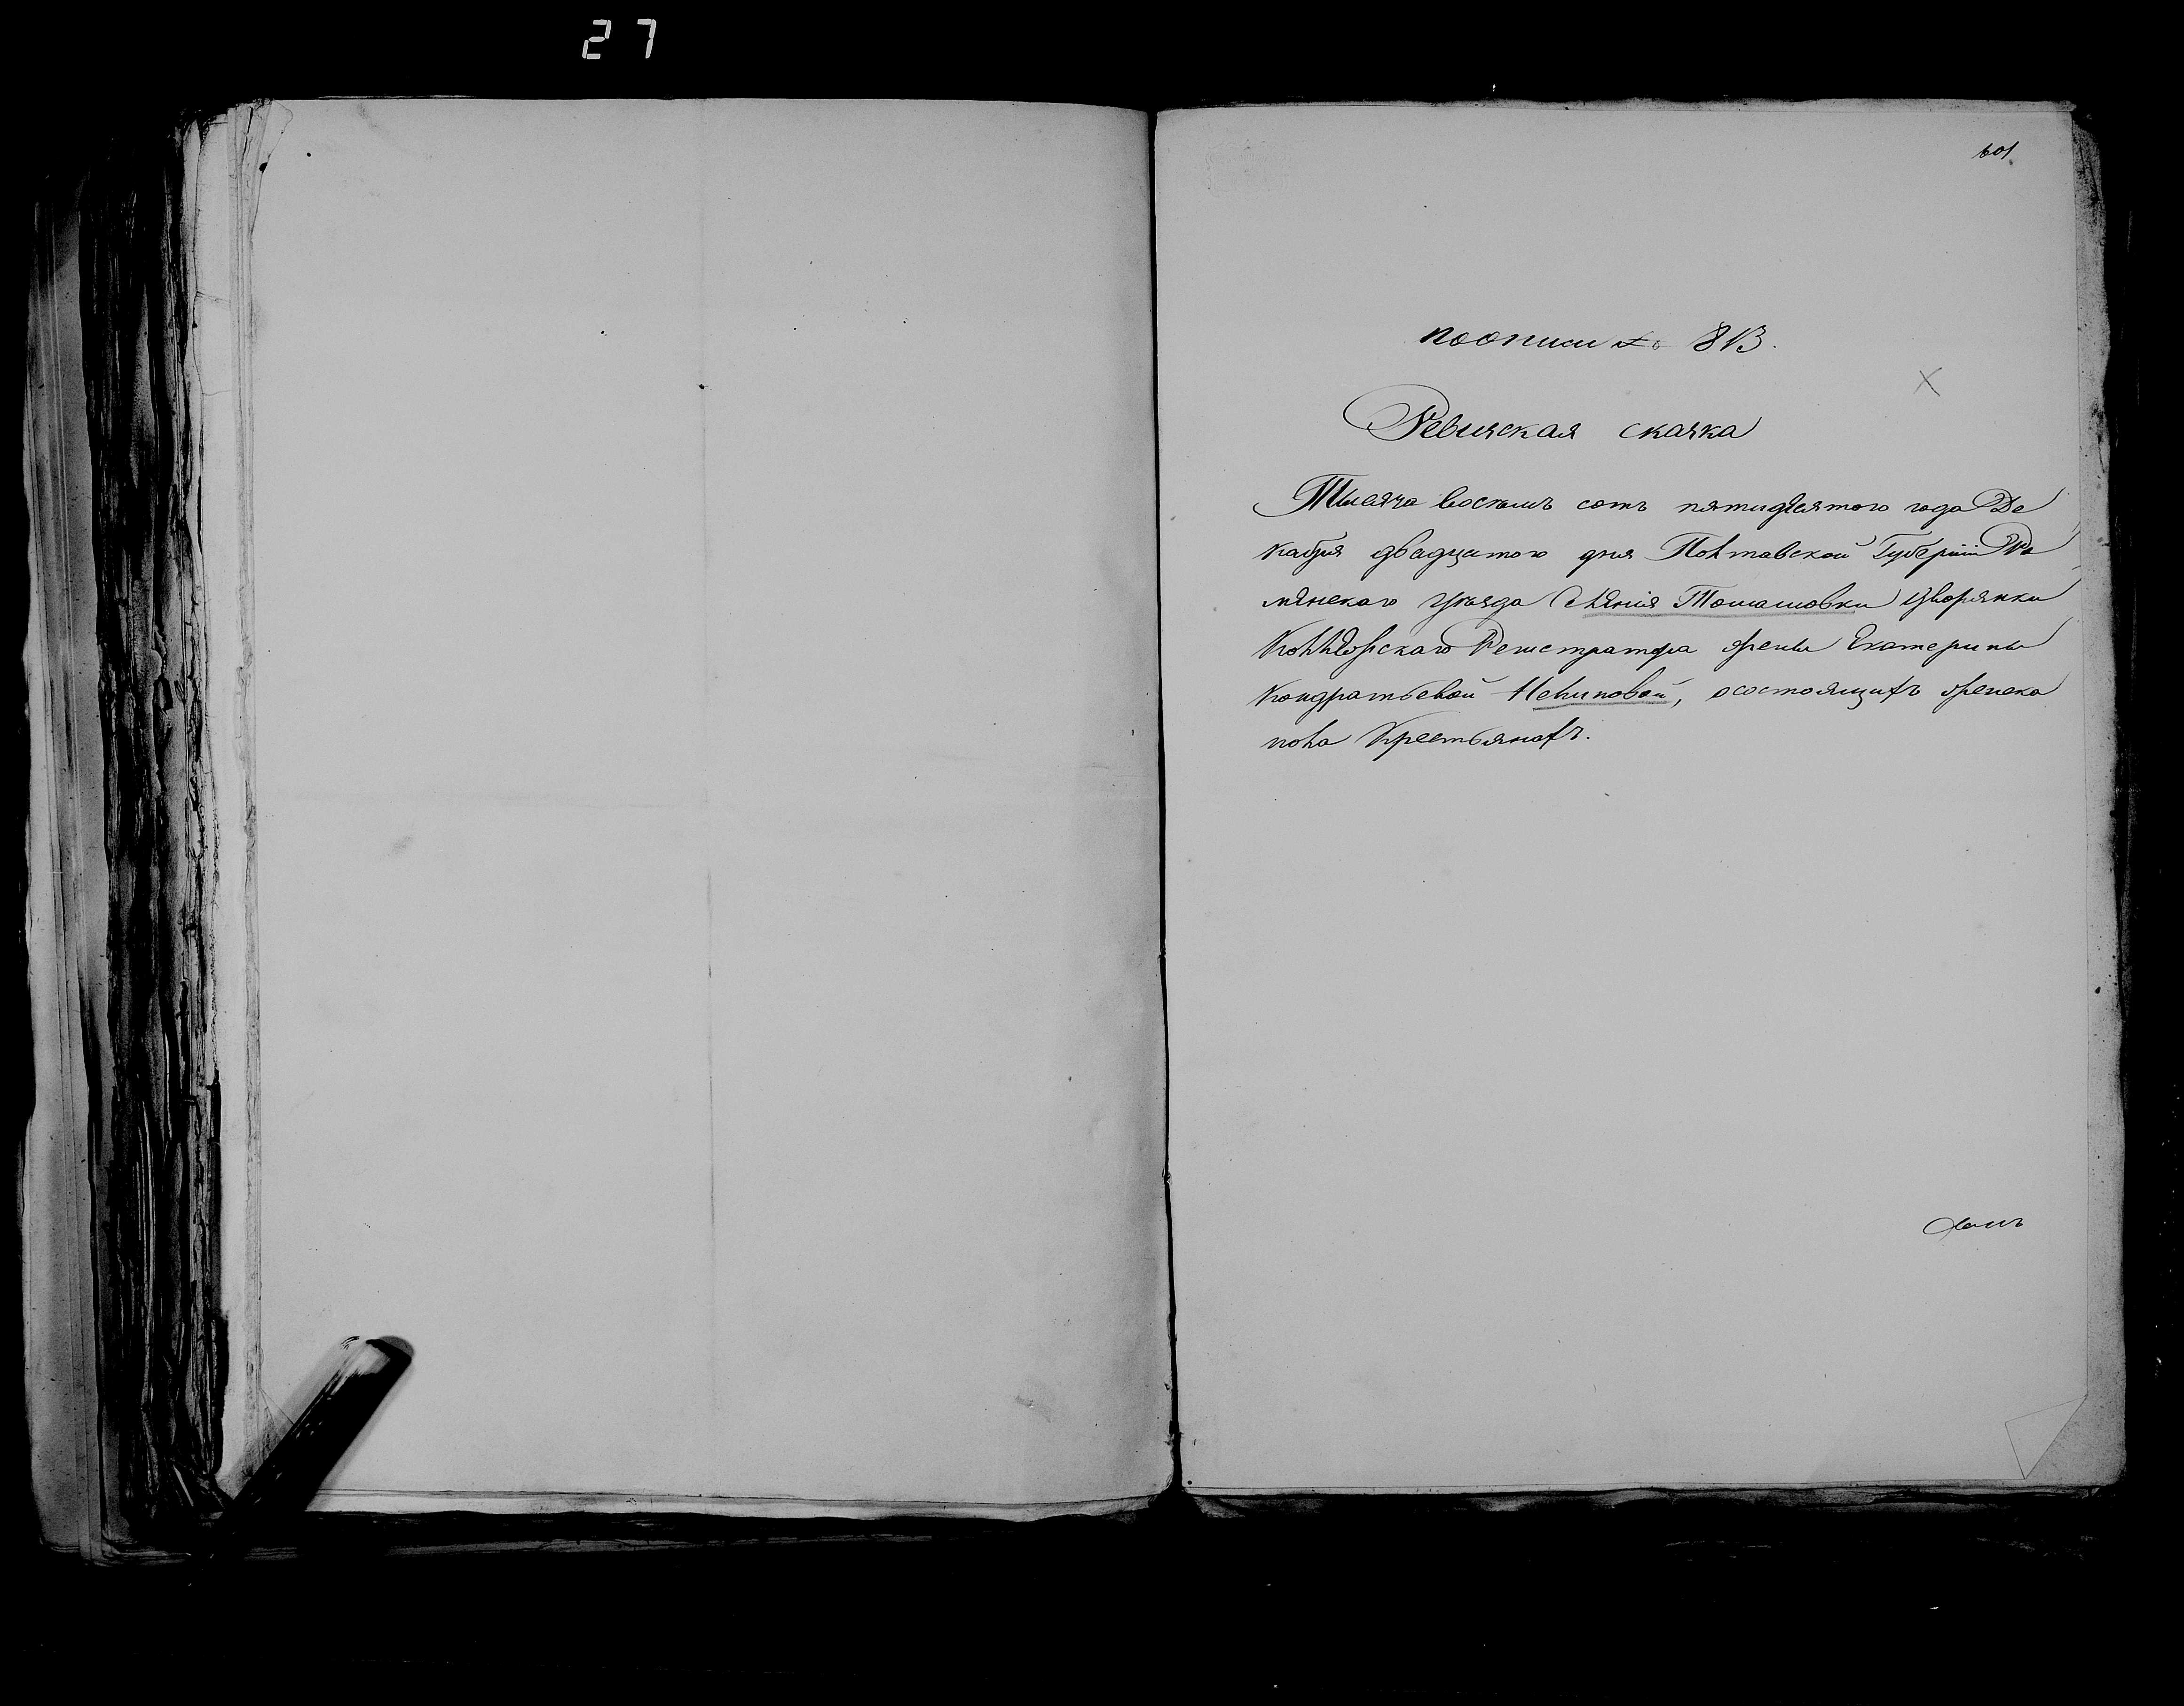 27
601
поописи № 813.
Ревизская сказка
Тысяча восемь сотъ пятидесятого года Де
кабря двадцатого дня Полтавской Губерніи Ро
менского уѣзда Селенія Томашовки дворянки
Коллежскаго Регистратора жены Екатерины
Кондратьевой, осостоящихъ женска
пола Крестьянахъ.